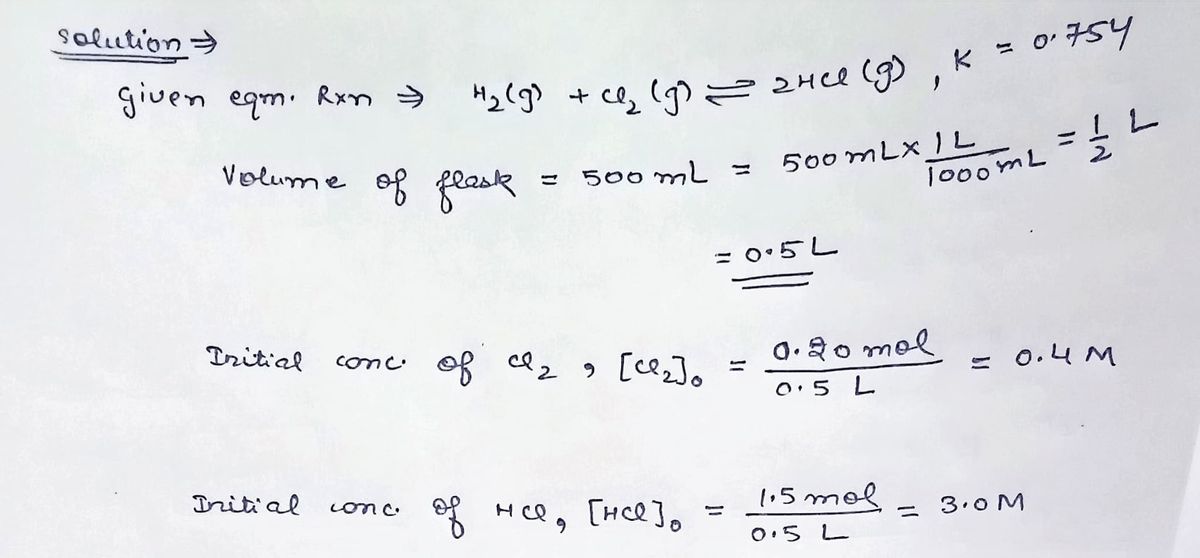 solution ⇒
given eqm. Rxn ⇒ H₂(g) + Cl₂(g) ⇌ 2HCl(g), K = 0.754
Volume of flask = 500 mL = 500 mL × 1 L / 1000 mL = 1/2 L
= 0.5 L
Initial conc. of Cl₂, [Cl₂]₀ = 0.20 mol / 0.5 L = 0.4 M
Initial conc. of HCl, [HCl]₀ = 1.5 mol / 0.5 L = 3.0 M